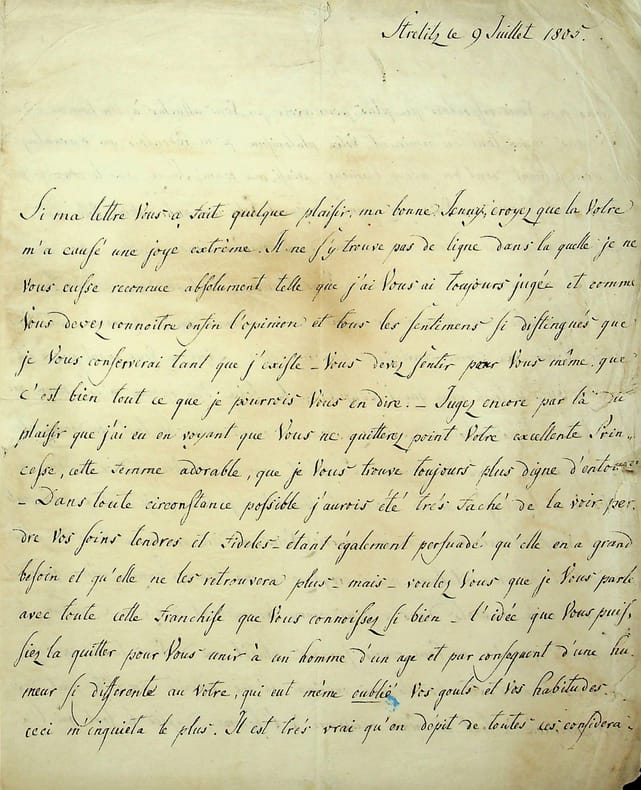 Strelitz le 9 Juillet 1805.
Si ma lettre Vous a fait quelque plaisir, ma bonne Jenny, croyez que la Votre
m'a causé une joye extrème. Il ne s'y trouve pas de ligne dans la quelle je ne
Vous eusse reconnue absolument telle que j'ai Vous ai toujours jugée et comme
Vous devez connoitre enfin l'opinion et tous les sentimens si distingués que
je Vous conserverai tant que j'existe – Vous devez sentir par Vous même, que
c'est bien tout ce que je pourrois Vous en dire. – Jugez encore par là du
plaisir que j'ai eu en voyant que Vous ne quitterez point Votre excellente Prin„
cesse, cette femme adorable, que je Vous trouve toujours plus digne d'entourer
– Dans toute circonstance possible j'aurois été trés faché de la voir per„
dre Vos soins tendres et fideles – étant également persuadé qu'elle en a grand
besoin et qu'elle ne les retrouvera plus – mais – voulez Vous que je Vous parle
avec toute cette franchise que Vous connoissez si bien – l'idée que Vous puis„
siez la quitter pour Vous unir à un homme d'un age et par consequent d'une hu„
meur si differente au Votre, qui eut même oublié Vos gouts et Vos habitudes.
ceci m'inquieta le plus. Il est trés vrai qu'en depit de toutes ces considera„